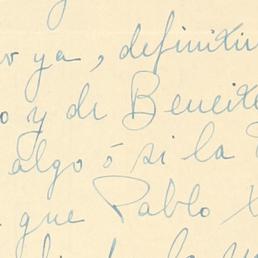 ya, definiti
y de Beneite
algo ó si la
que Pablo